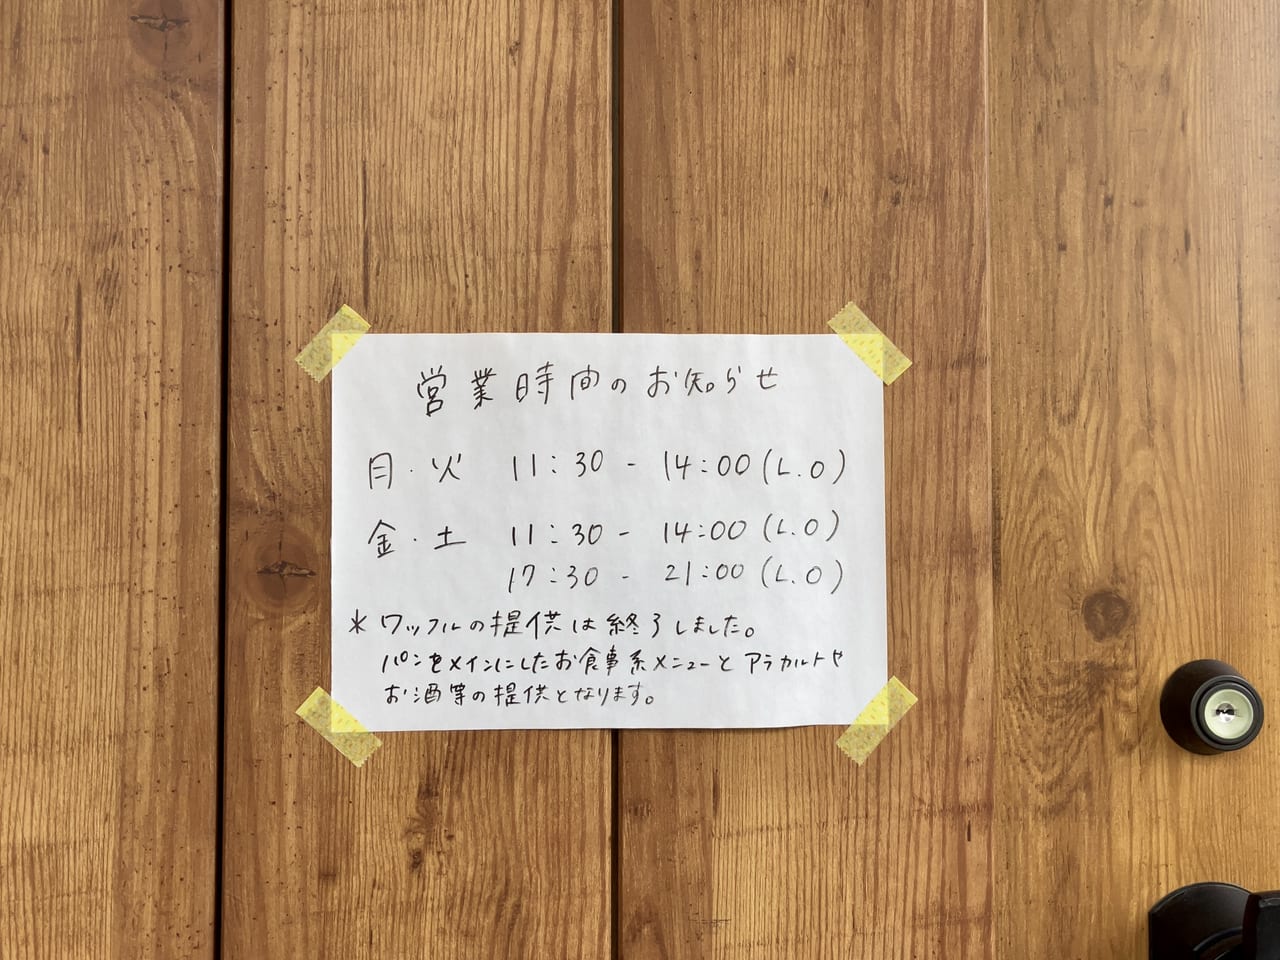 営業時間のお知らせ
月・火 11:30 - 14:00 (L.O)
金・土 11:30 - 14:00 (L.O)
17:30 - 21:00 (L.O)
* ワッフルの提供は終了しました。
パンをメインにしたお食事系メニューとアラカルトや
お酒等の提供となります。